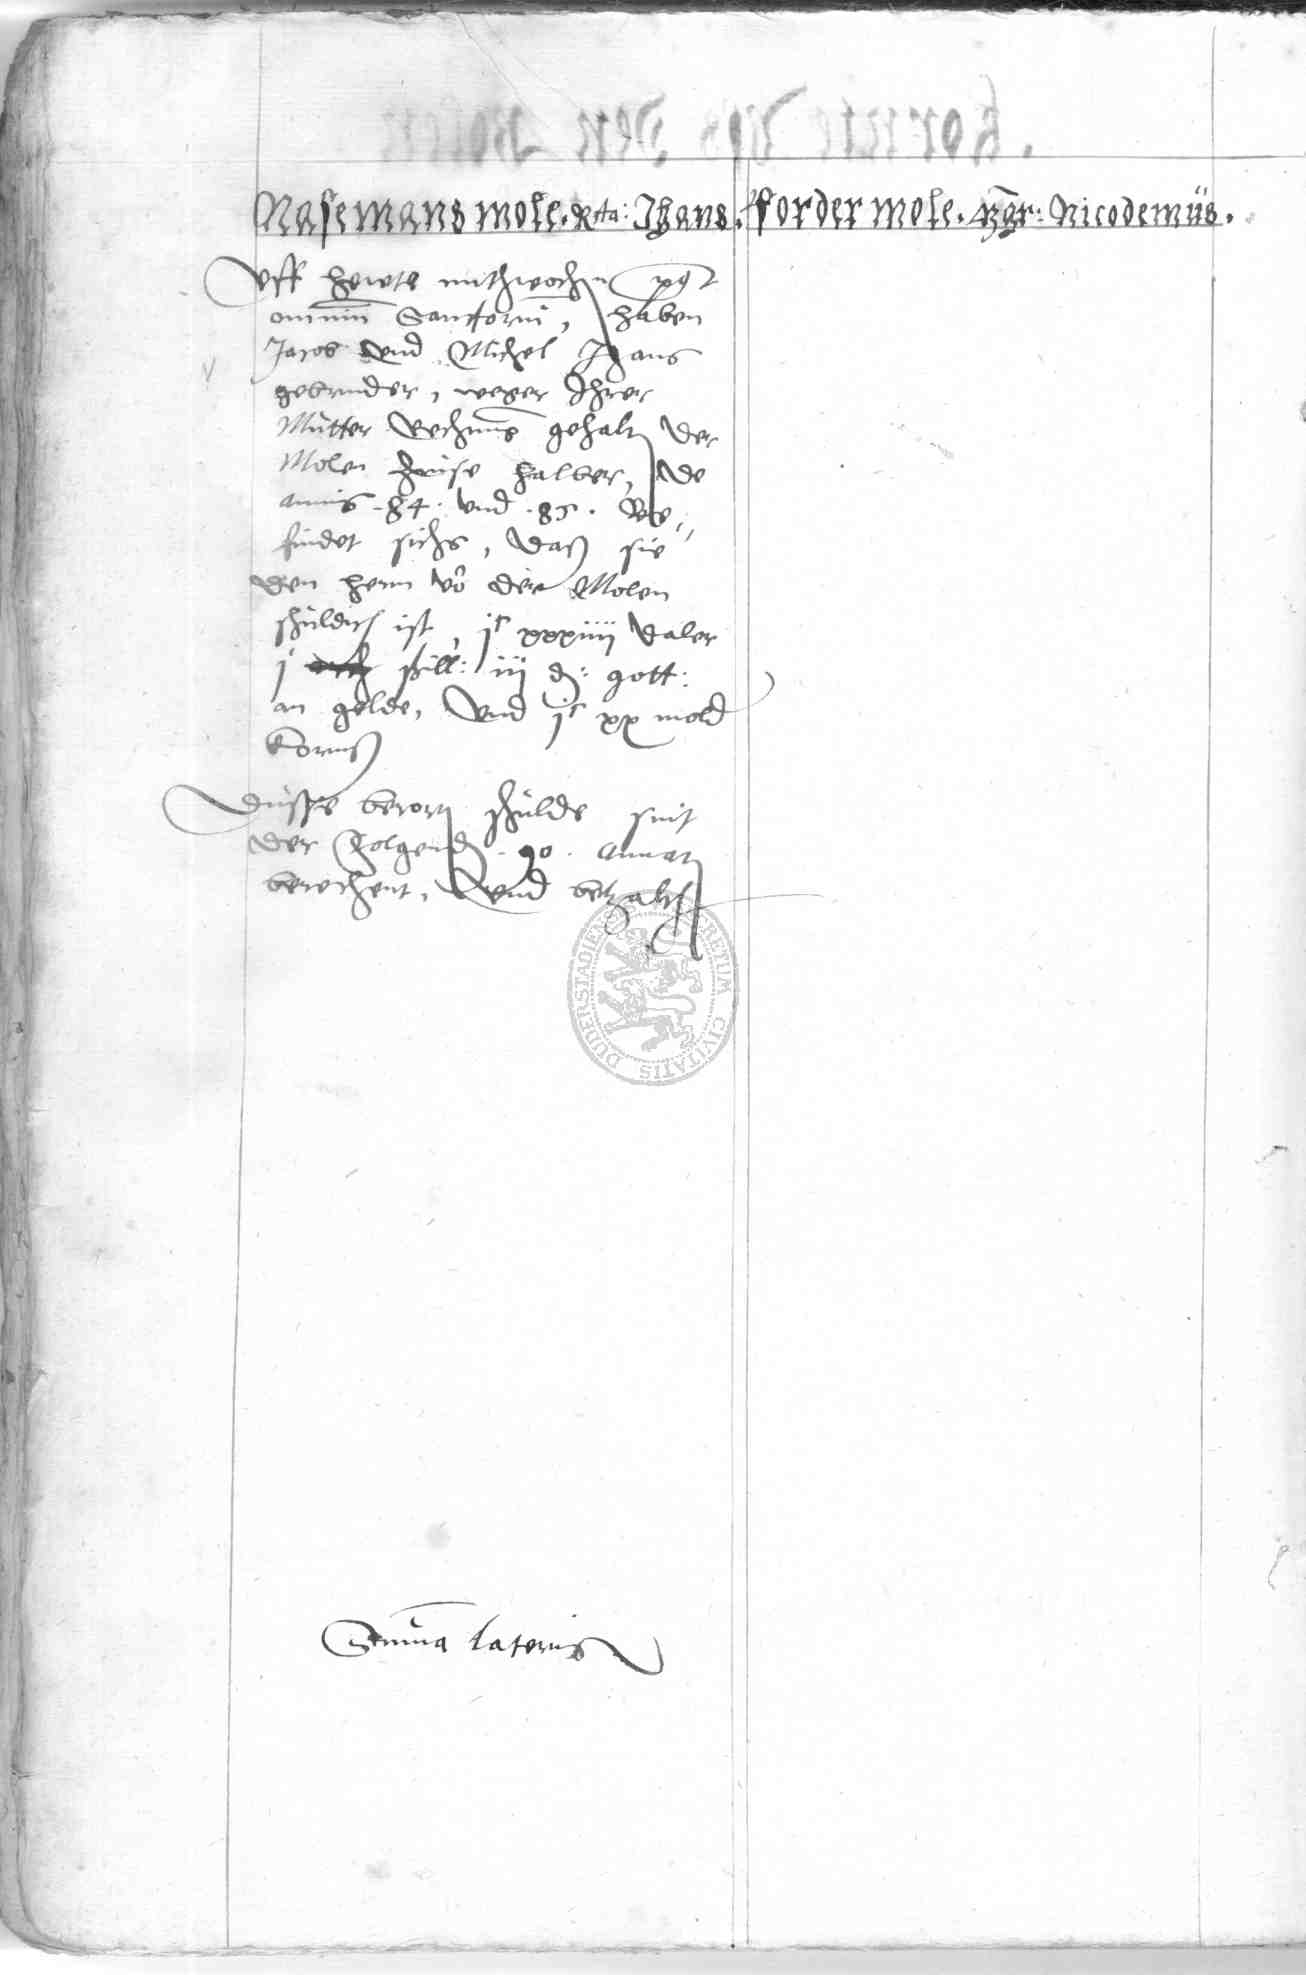 Nasemans mole. Rta: Jhans.
forder mole. Mgr: Nicodemüs.
Vff hewte mithwochen post
omnium Sanctorum, haben
Jacob vnd Michel Jhans
gebruder, wegen Ihrer
Mutter Rechnung gehalten der
Molen Zinse halber, de
annis .84. vnd .85. Be„
findet sichs, daß sie
den hern võ der Molen
schuldich ist, jc xxxiiij daler
j schill: iij d: gott:
an gelde, vnd jc xx mold
Korns
Dusse berorten schulde sint
der Folgenden .90. annaten
berechent, vnd betzalt
SECRETUM CIVITATIS DUDERSTADIENSIS
Summa lateris